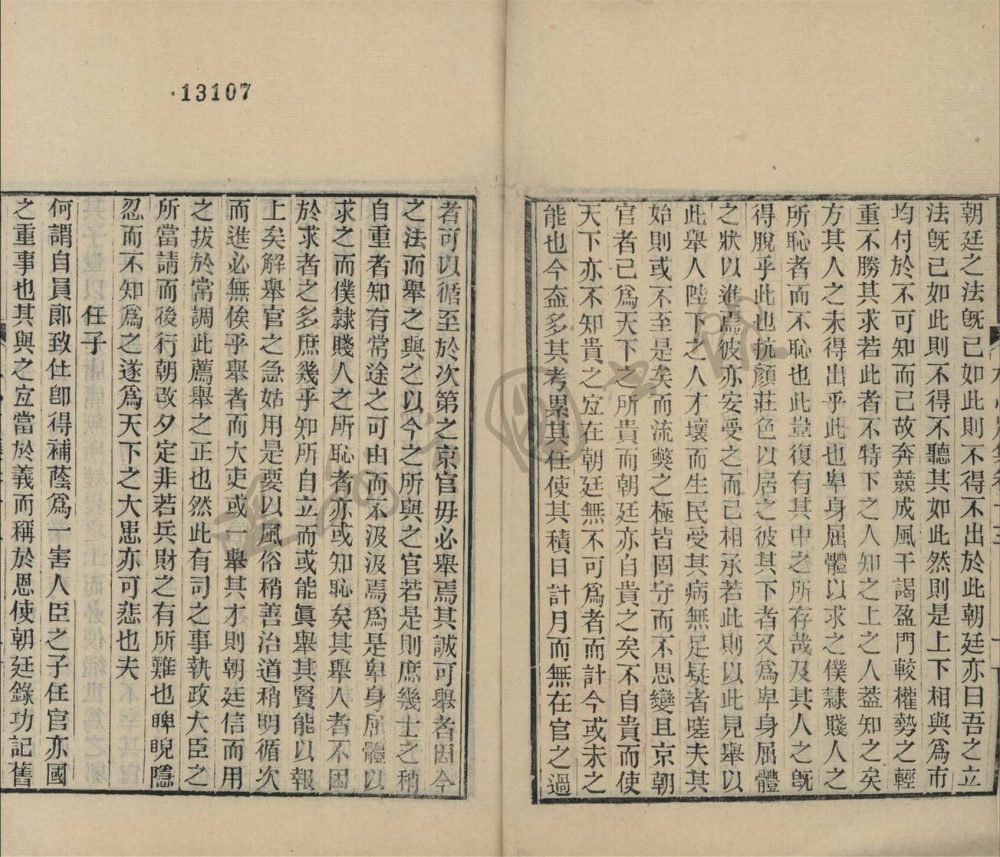 朝廷之法旣已如此則不得不出於此朝廷亦曰吾之立
法旣已如此則不得不聽其如此然則是上下相與爲市
均付於不可知而已故奔競成風干謁盈門較權勢之輕
重不勝其求若此者不特下之人知之上之人葢知之矣
方其人之未得出乎此也卑身屈體以求之僕隸賤人之
所恥者而不恥也此豈復有其中之所存哉及其人之旣
得脫乎此也抗顏莊色以居之彼其下者又爲卑身屈體
之狀以進焉彼亦安受之而已相承若此則以此見舉以
此舉人陛下之人才壞而生民受其病無足疑者嗟夫其
始則或不至是矣而流獘之極皆固守而不思變且京朝
官者已爲天下之所貴而朝廷亦自貴之矣不自貴而使
天下亦不知貴之宐在朝廷無不可爲者而計今或未之
能也今益多其考累其任使其積日計月而無在官之過
者可以循至於次第之京官毋必舉焉其誠可舉者因今
之法而舉之與之以今之所與之官若是則庶幾士之稍
自重者知有常途之可由而不汲汲焉爲是卑身屈體以
求之而僕隸賤人之所恥者亦或知恥矣其舉人者不因
於求者之多庶幾乎知所自立而或能眞舉其賢能以報
上矣解舉官之急姑用是要以風俗稍善治道稍明循次
而進必無俟乎舉者而大吏或一舉其才則朝廷信而用
之拔於常調此薦舉之正也然此有司之事執政大臣之
所當請而後行朝改夕定非若兵財之有所難也睥睨隱
忍而不知爲之遂爲天下之大患亦可悲也夫
任子
何謂自員郞致仕卽得補蔭爲一害人臣之子任官亦國
之重事也其與之宐當於義而稱於恩使朝廷錄功記舊
13107